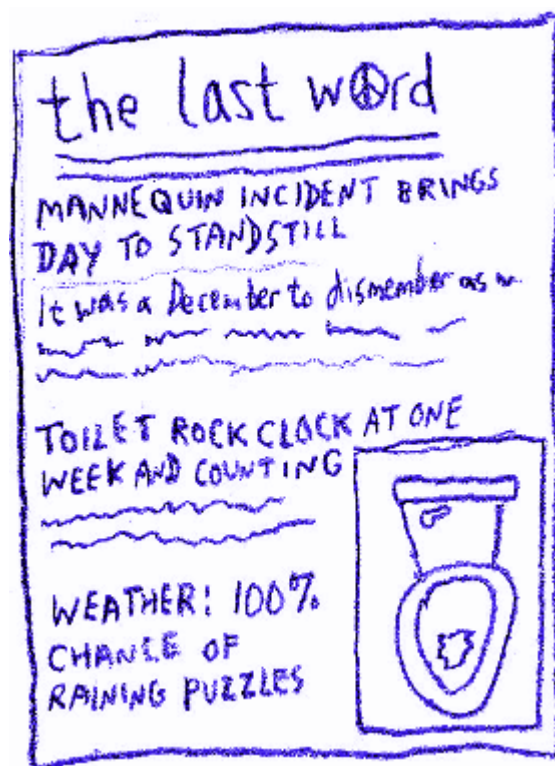 the last word
MANNEQUIN INCIDENT BRINGS
DAY TO STANDSTILL
It was a December to dismember as
TOILET ROCK CLOCK AT ONE
WEEK AND COUNTING
WEATHER: 100%
CHANCE OF
RAINING PUZZLES